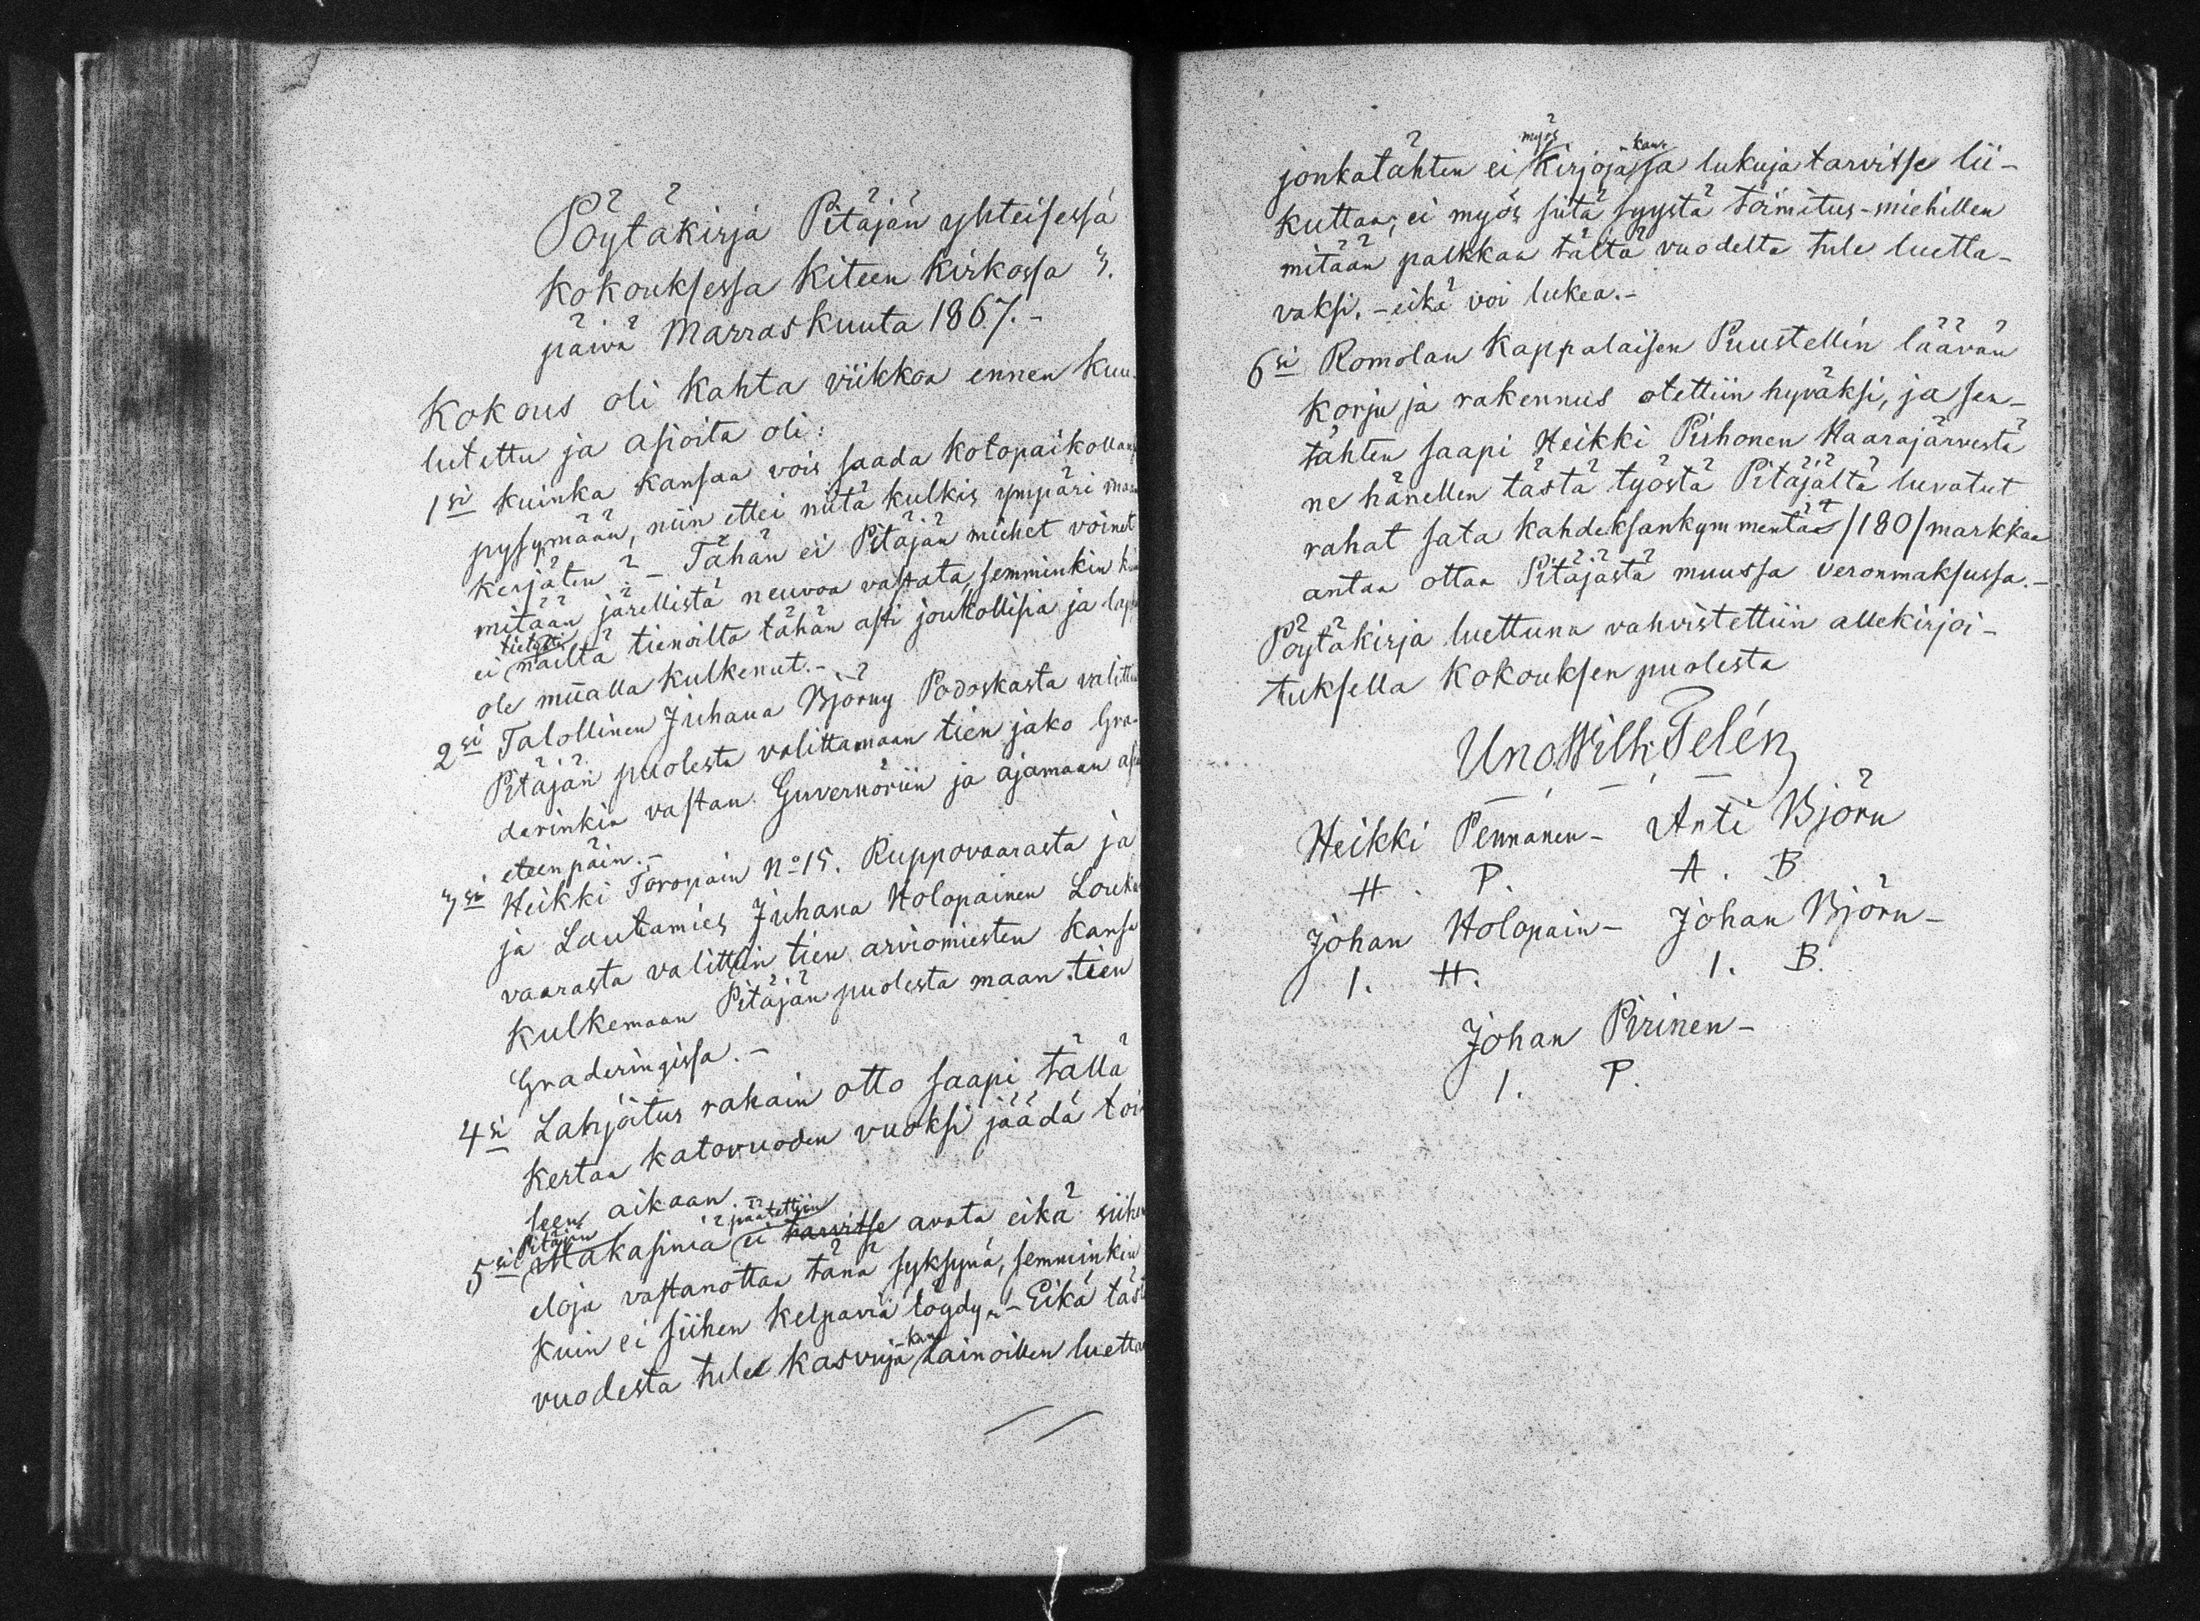 Pöytäkirja Pitäjän yhteisessä
kokouksessa Kiteen kirkossa 3.
päivä Marraskuuta 1867. -
Kokous oli kahta viikkoa ennen kuu-
lutettu ja asioita oli:
1si kuinka kansaa vois saada kotopaikollans
pysymään, niin ettei niitä kulkis ympäri
kerjäten? - Tähän ei Pitäjän miehet voinet
mitään järellistä neuvoa vastata, semminkin
ei näiltä tienoilta tähän asti joukollisia ja
ole muualla kulkenut. -
2si Talollinen Juhana Björny Podoskasta valittin
Pitäjän puolesta valittamaan tien jako Gra-
derinkia vastan Guvernöriin ja ajamaan
eteenpäin. -
3si Heikki Toropain No 15. Ruppovaarasta ja
ja Lautamies Juhana Holopainen Louki
vaarasta valittiin tien arviomiesten kansa
kulkemaan Pitäjän puolesta maan tien
Graderingissa. -
4si Lahjoitus rahain otto saapi tällä
kertaa katovuoden vuoksi jäädä toi
seen aikaan. -
Pitäjän päätettiin
5si Makasinia ei tarvitse avata eikä siihen
eloja vastanottaa tänä syksynä, semminkin
kuin ei siihen kelpavia löydy. - Eikä täst
vuodesta tule kasvuja kans Lainoillen luetta
myös kans
jonkatähten ei kirjoja ja lukuja tarvitse lii-
kuttaa; ei myös siitä syystä toimitus-miehillen
mitään palkkaa tältä vuodelta tule luetta-
vaksi. - eikä voi lukea. -
6si Romolan Kappalaisen Puustellin läävän
korju ja rakennus otettiin hyväksi, ja sen-
tähten saapi Heikki Pirhonen Haarajärvestä
ne hänellen tästä työstä Pitäjältä luvatut
rahat sata kahdeksankymmentä /180/ markkaa
antaa ottaa Pitäjästä muussa veronmaksussa. -
Pöytäkirja luettuna vahvistettiin allekirjoi-
tuksella Kokouksen puolesta
Uno Wilh Telén
Heikki Pennanen - Anti Björn
H. P. A. B
Johan Holopain - Johan Björn -
I. H. I. B.
Johan Pirinen -
I. P.